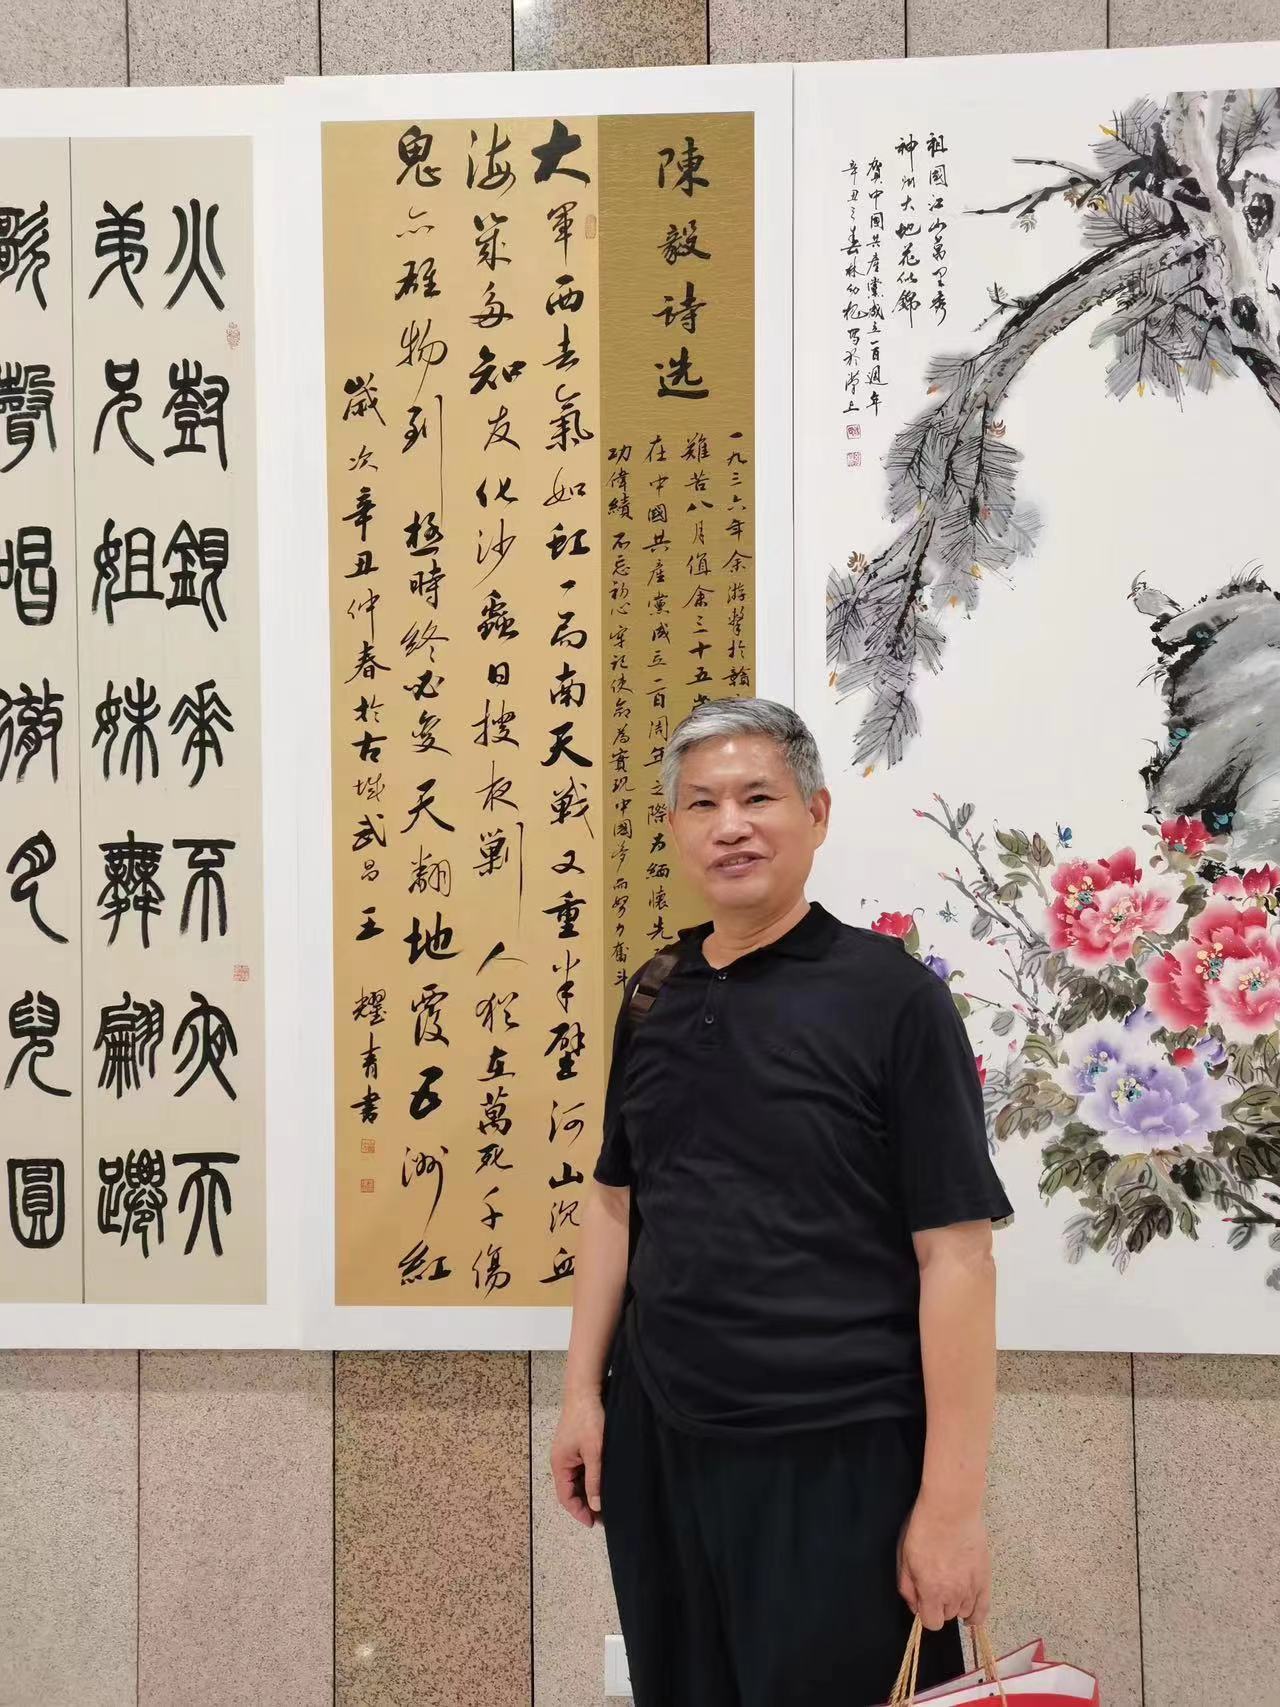 祖國江山萬里秀
神州大地花似錦
賀中國共產黨成立一百週年
辛丑之春林幼
陳毅诗选
一九三六年余游擊於贛
難苦八月值余三十五
在中國共產黨成立一百周年之際为緬懷先
功偉績不忘初心牢記使命為實現中國夢而努力奮斗
大軍西去氣如虹一局南天戰又重半壁河山沉血
海幾多知友化沙蟲日搜夜剿人犹在萬死千傷
鬼亦雄物到極時終必變天翻地覆五洲紅
歲次辛丑仲春於古城武昌王耀青書
火樹銀花不夜天
弟兄姐妹舞翩躚
歌聲唱徹月兒圓